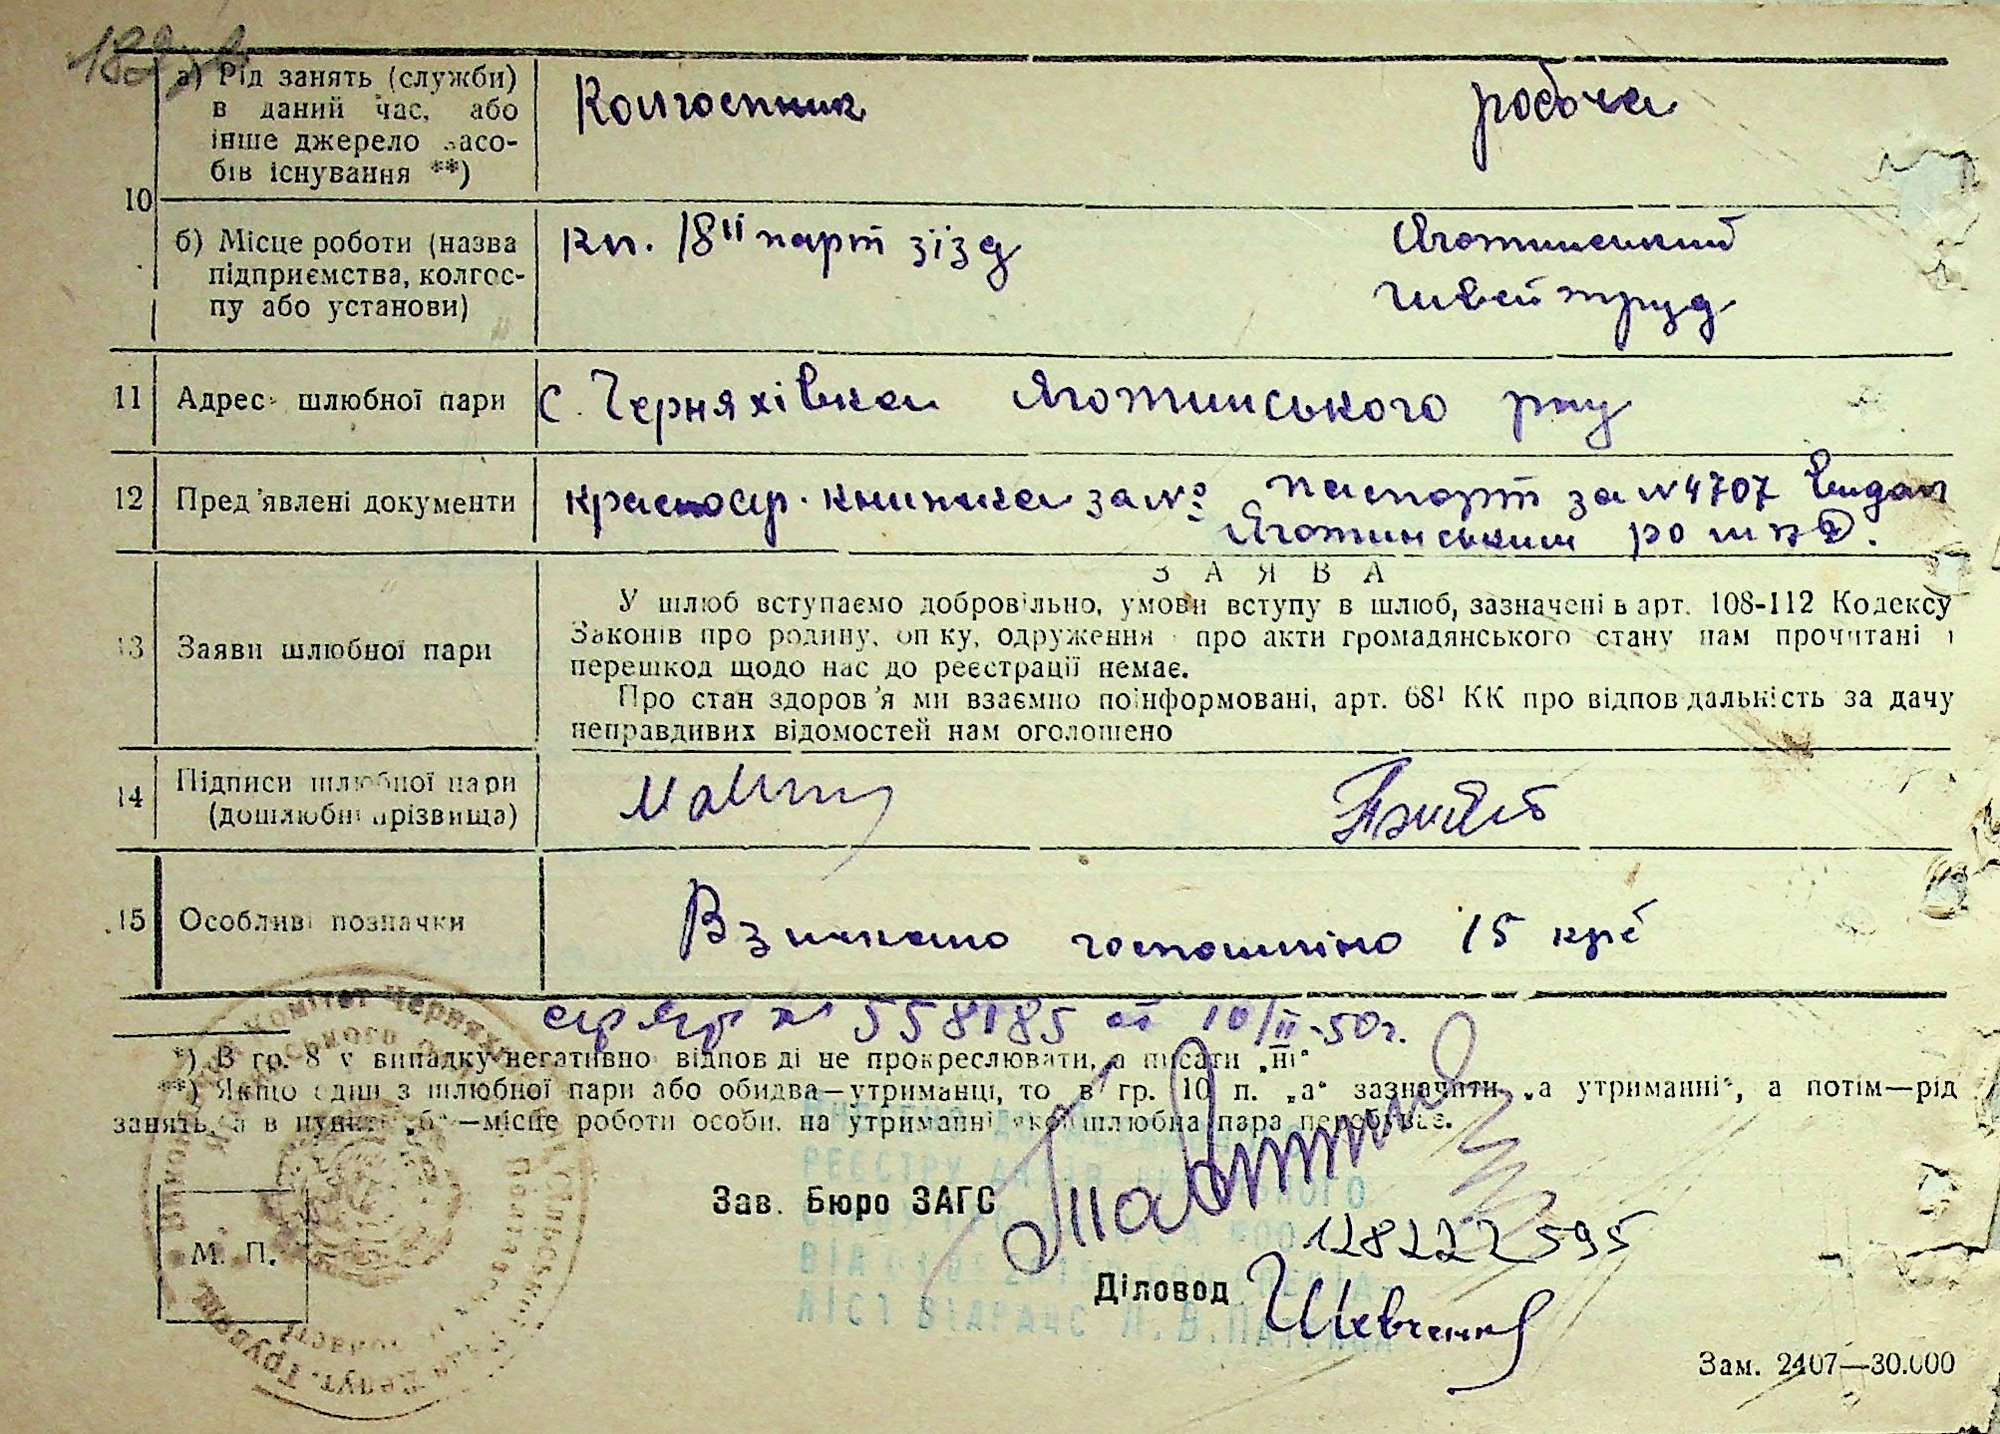 а) Рід занять (служби)
в даний час, або
інше джерело засо-
бів існування **)
Колгоспник
робоча
10
б) Місце роботи (назва
підприємства, колгос-
пу або установи)
кп. 18ІІ парт зїзд
Яготинський
швейпруд
11
Адрес шлюбної пари
с. Черняхівка Яготинського рну
12
Пред'явлені документи
красноар. книжка за №
паспорт за № 4707 видан
Яготинським РО МВД.
ЗАЯВА
13
Заяви шлюбної пари
У шлюб вступаємо добровільно, умови вступу в шлюб, зазначені в арт. 108-112 Кодексу
Законів про родину, опіку, одруження про акти громадянського стану нам прочитані і
перешкод щодо нас до реєстрації немає.
Про стан здоров'я ми взаємно поінформовані, арт. 68¹ КК про відповідальність за дачу
неправдивих відомостей нам оголошено
14
Підписи шлюбної пари
(дошлюбні прізвища)
15
Особливі позначки
Взискано госпошліно 15 крб
№ 558185 от 10/II-50г.
*) В гр. 8 у випадку негативної відповіді не прокреслювати, а писати „ні“
**) Якщо один з шлюбної пари або обидва—утриманці, то в гр. 10 п. „а“ зазначити „а утриманні“, а потім—рід
занять, а в пункті „б“—місце роботи особи, на утриманні якої шлюбна пара перебуває.
Зав. Бюро ЗАГС
128222595
М. П.
Діловод
Шевченко
Зам. 2407—30.000